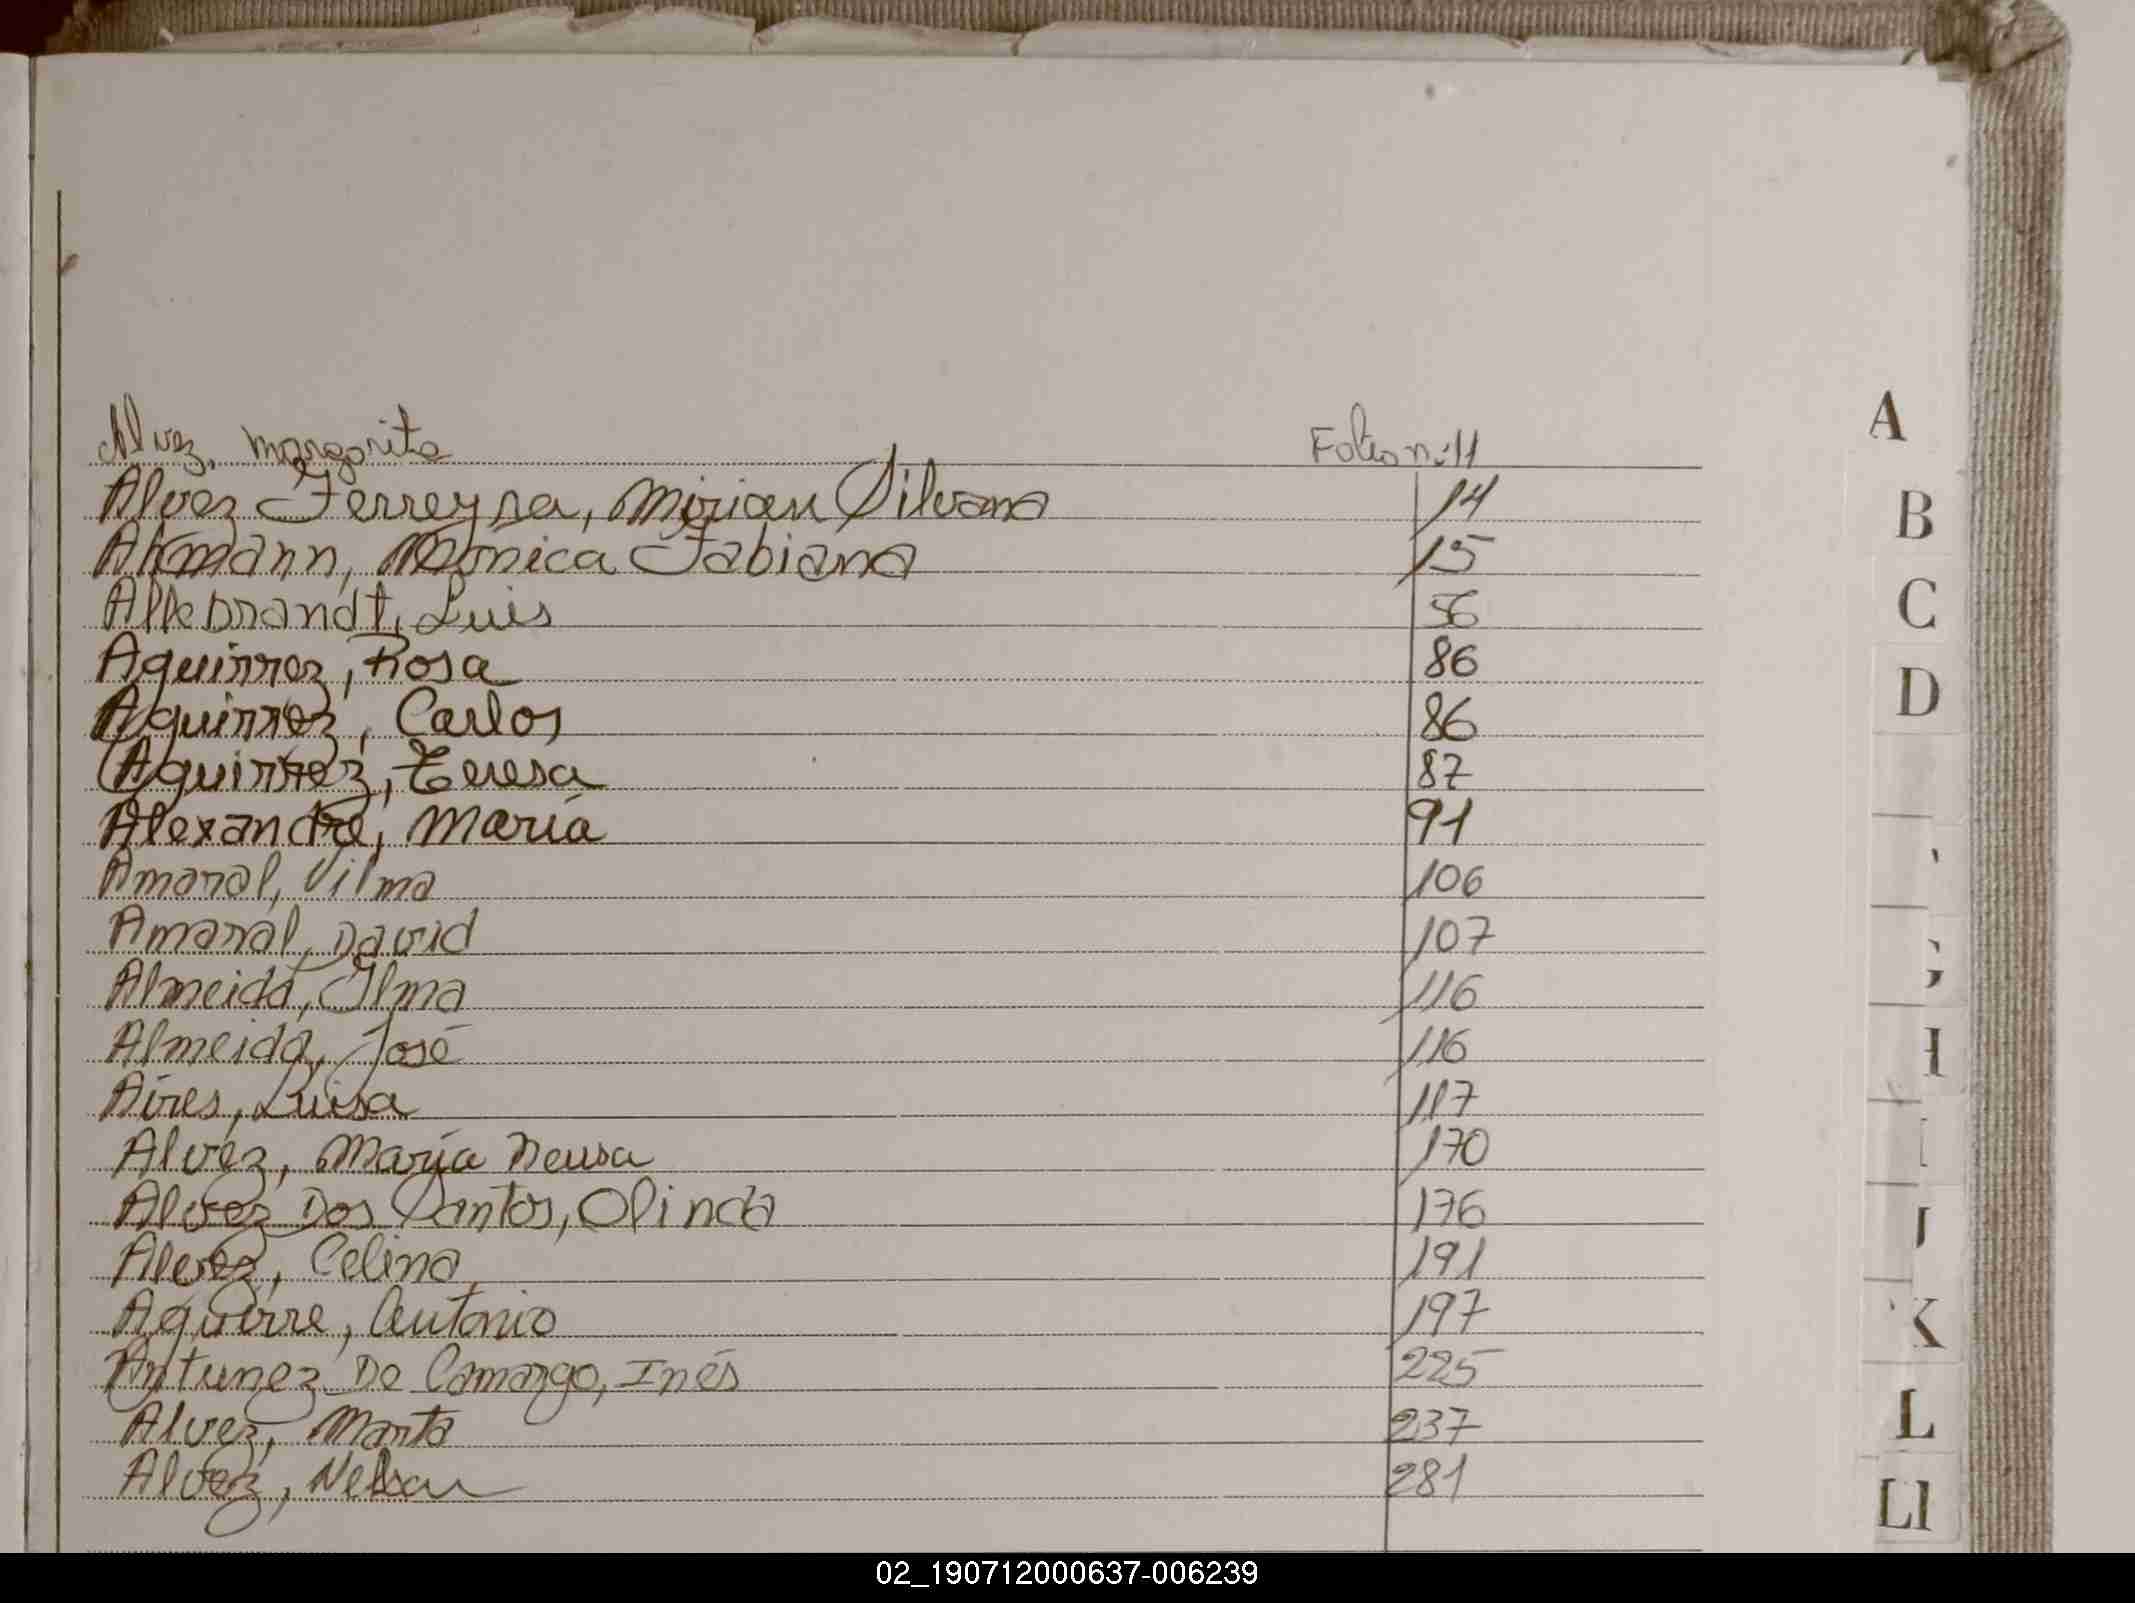 Alvez, Margarita Folio n: 11
Alvez Ferreyra, Mirian Silvana 14
Altmann, Mónica Fabiana 15
Allebrandt, Luis 56
Aguirrez, Rosa 86
Aguirrez, Carlos 86
Aguirrez, Teresa 87
Alexandre, María 91
Amaral, Vilma 106
Amaral, David 107
Almeida, Ilma 116
Almeida, José 116
Aires, Luisa 117
Alvez, María Neusa 170
Alvez Dos Santos, Olinda 176
Alvez, Celina 191
Aguirre, Antonio 197
Antunez De Camargo, Inés 225
Alvez, Marta 237
Alvez, Nelson 281
A
B
C
D
H
I
J
K
L
Ll
02_190712000637-006239